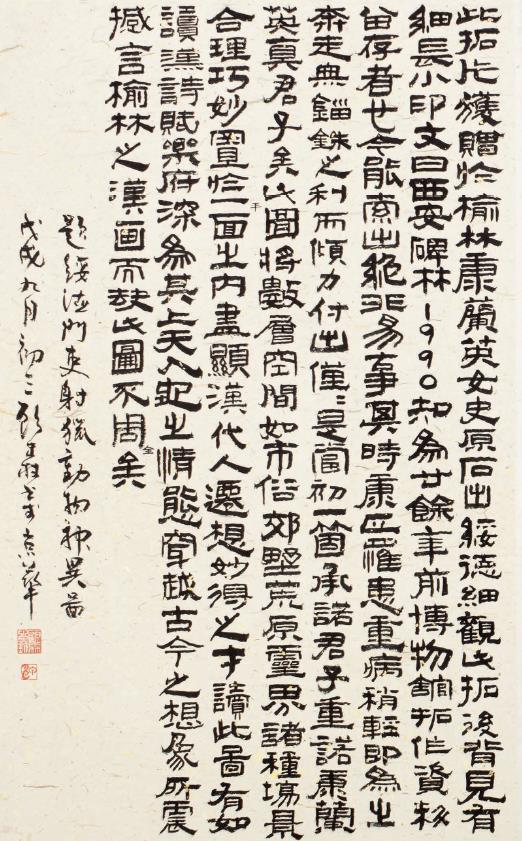 此拓片获赠於榆林康蘭英女史原石出綏德細觀此拓後背見有
細長小印文曰西安碑林1990知為廿餘年前博物館拓作資料
留存者也今能索出絕非易事其時康正罹患重病稍輕即為之
奔走無錙銖之利而傾力付出僅僅是當初一箇承諾君子重諾康蘭
英真君子矣此圖將數層空間如市俗郊野荒原靈界諸種場景
合理巧妙置於一面之内盡顯漢代人遷想妙得之才讀此圖有如
讀漢詩賦樂府深為其上天入地之情態穿越古今之想象所震
撼言榆林之漢画而缺此圖不周矣
題綏德門吏射獵動物神異圖
戊戌九月初三